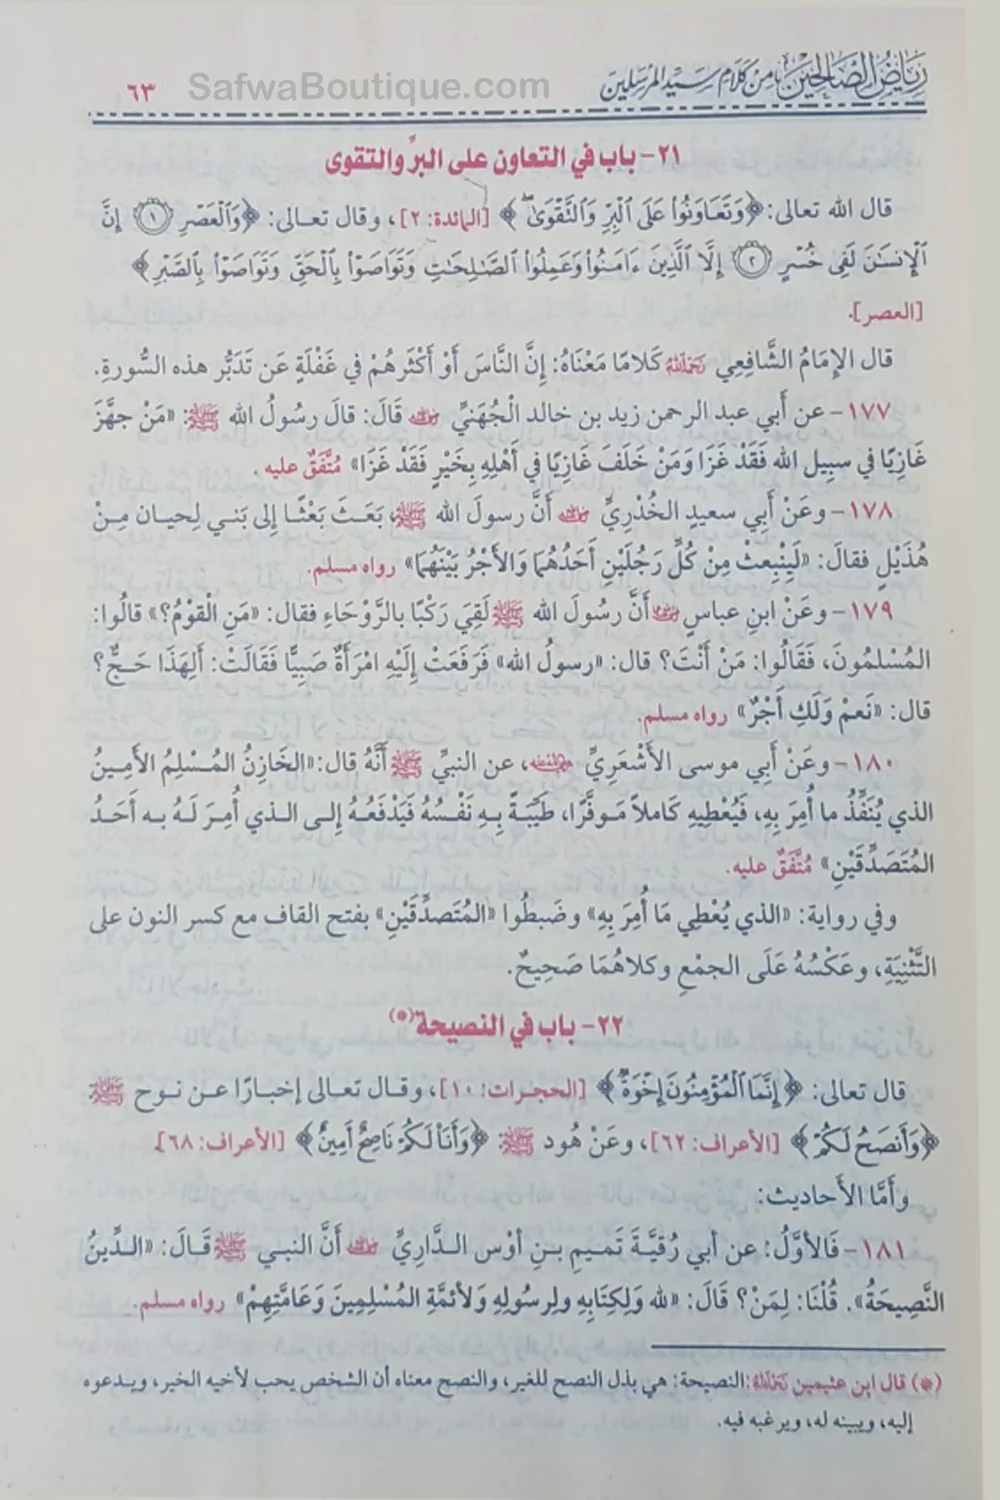 رياض الصالحين من كلام سيد المرسلين
SafwaBoutique.com
٦٣
٢١- باب في التعاون على البرِّ والتقوى
قال الله تعالى: ﴿وَتَعَاوَنُوا۟ عَلَى ٱلْبِرِّ وَٱلتَّقْوَىٰ ۖ﴾ [المائدة: ٢]، وقال تعـالى: ﴿وَٱلْعَصْرِ ١ إِنَّ
ٱلْإِنسَـٰنَ لَفِى خُسْرٍ ٢ إِلَّا ٱلَّذِينَ ءَامَنُوا۟ وَعَمِلُوا۟ ٱلصَّـٰلِحَـٰتِ وَتَوَاصَوْا۟ بِٱلْحَقِّ وَتَوَاصَوْا۟ بِٱلصَّبْرِ﴾
[العصر].
قال الإمَامُ الشَّافِعِي رَحِمَهُ اللهُ كَلَامًا مَعْنَاهُ: إِنَّ النَّاسَ أَوْ أَكْثَرُهُمْ فِي غَفْلَةٍ عَن تَدَبُّرِ هذه السُّورةِ.
١٧٧- عن أَبي عبد الرحمن زيد بن خالد الْجُهَنيِّ رضي الله عنه قَالَ: قالَ رسُولُ الله ﷺ: «مَنْ جهَّزَ
غَازِيًا في سبِيلِ الله فَقَدْ غَزَا وَمَنْ خَلَفَ غَازِيًا في أَهْلِهِ بِخَيْرٍ فَقَدْ غَزَا» مُتَّفَقٌ عليه.
١٧٨- وعَنْ أَبي سعيدٍ الخُدْرِيِّ رضي الله عنه أَنَّ رسولَ الله ﷺ، بَعَـثَ بَعْثًـا إِلى بَنـي لِحيـان مِـنْ
هُذَيْلٍ فقالَ: «لِيَنْبعِثْ مِنْ كُلِّ رَجُلَيْنِ أَحَدُهُمَا وَالأَجْرُ بَيْنَهُمَا» رواه مسلم.
١٧٩- وعَنْ ابنِ عباسٍ رضي الله عنهما أَنَّ رسُولَ الله ﷺ لَقِيَ رَكْبًا بالرَّوْحَاءِ فقال: «مَنِ الْقوْمُ؟» قالُوا:
المُسْلمُونَ، فَقَالُوا: مَنْ أَنْتَ؟ قال: «رسولُ الله» فَرَفَعَتْ إِلَيْهِ امْرَأَةٌ صَبِيًّا فَقَالَتْ: أَلِهَذَا حَـجٌّ؟
قال: «نَعمْ وَلَكِ أَجْرٌ» رواه مسلم.
١٨٠- وعَنْ أَبِي موسى الأَشْعَرِيِّ رضي الله عنه، عن النبيِّ ﷺ أَنَّهُ قال: «الخَازِنُ المُـسْلِمُ الأَمِـينُ
الذي يُنَفِّذُ ما أُمِرَ بِهِ، فَيُعْطِيهِ كَاملاً مَـوفَّرًا، طَيِّبَـةً بِـهِ نَفْـسُهُ فَيَدْفَعُـهُ إِلـى الـذي أُمِـرَ لَـهُ بـه أَحَـدُ
المُتَصَدِّقَيْنِ» مُتَّفَقٌ عليه.
وفي رواية: «الذي يُعْطِي مَا أُمِرَ بِهِ» وضَبطُوا «المُتَصدِّقَيْنِ» بفتح القاف مع كسر النون على
التَّثْنِيَةِ، وعَكْسُهُ عَلَى الجمْعِ وكلاهُمَا صَحِيحٌ.
٢٢- باب في النصيحة(*)
قال تعالى: ﴿إِنَّمَا ٱلْمُؤْمِنُونَ إِخْوَةٌ﴾ [الحجـرات: ١٠]، وقـال تعـالى إخبـارًا عـن نـوح ﷺ
﴿وَأَنصَحُ لَكُمْ﴾ [الأعراف: ٦٢]، وعَنْ هُود ﷺ ﴿وَأَنَا۠ لَكُمْ نَاصِحٌ أَمِينٌ﴾ [الأعراف: ٦٨].
وأمَّا الأحاديث:
١٨١- فَالأوَّلُ: عن أبي رُقيَّـةَ تَمـيمِ بـنِ أوْس الـدَّارِيِّ رضي الله عنه أَنَّ النبـي ﷺ قَـالَ: «الـدِّينُ
النَّصِيحَةُ». قُلْنَا: لِمَنْ؟ قَالَ: «لله وَلِكِتَابِهِ ولِرسُولِهِ وَلأئمَّةِ المُسْلِمِينَ وَعَامَّتِهِمْ» رواه مسلم.
(*) قال ابن عثيمين رحمه الله: النصيحة: هي بذل النصح للغير، والنصح معناه أن الشخص يحب لأخيه الخير، ويـدعوه
إليه، ويبينه له، ويرغبه فيه.